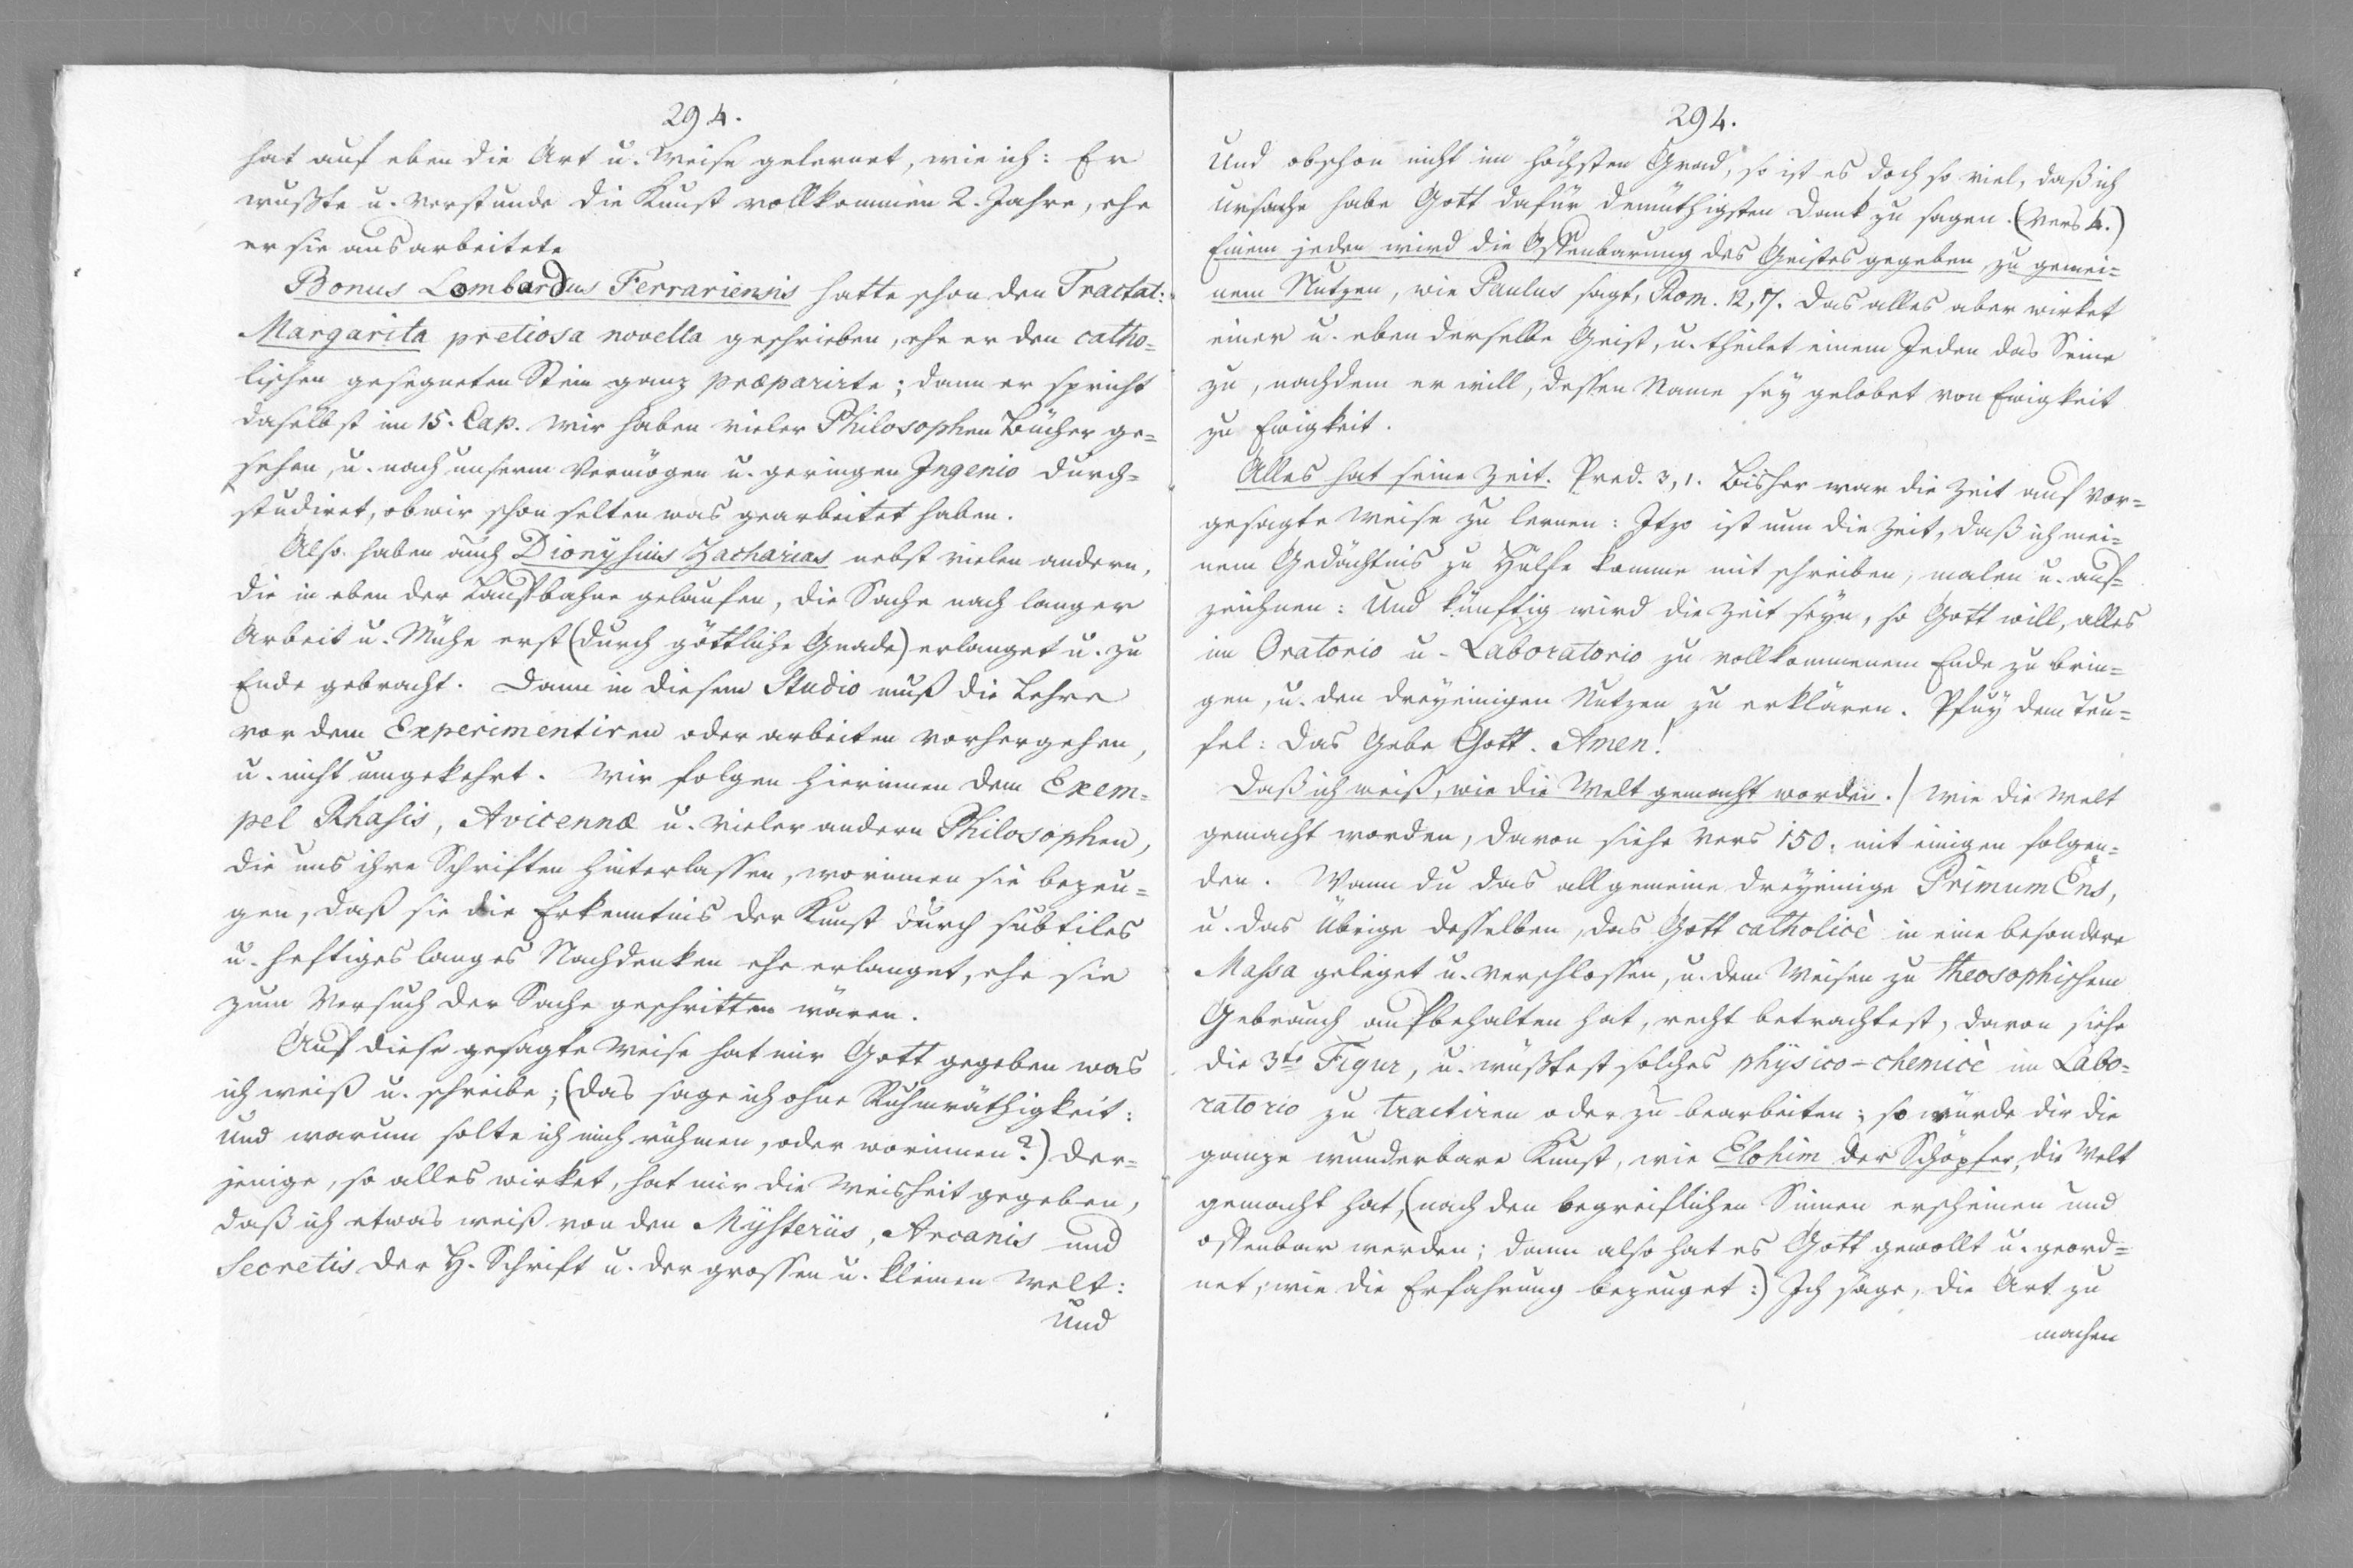 294.
hat auf eben die Art u. Weise gelernet, wie ich: Er
wußte u. verstunde die Kunst vollkommen 2. Jahre, ehe
er sie ausarbeitete
Bonus Lombardus Ferrariensis hatte schon den Tractat:
Margarita pretiosa novella geschrieben, ehe er den catho=
lischen gesegneten Stein ganz præparirte; dann er spricht
daselbst im 15. Cap. Wir haben vieler Philosophen Bücher ge=
sehen, u. nach unserm Vermögen u. geringen Ingenio durch=
studiret, ob wir schon selten was gearbeitet haben.
Also haben auch Dionysius Zacharias nebst vielen andern,
die in eben der Lauffbahne gelaufen, die Sache nach langer
Arbeit u. Mühe erst (durch göttliche Gnade) erlanget u. zu
Ende gebracht. Dann in diesem Studio muß die Lehre
vor dem Experimentiren oder arbeiten vorhergehen,
u. nicht umgekehrt. Wir folgen hierinnen dem Exem=
pel Rhasis, Avicennæ u. vieler andern Philosophen,
die uns ihre Schriften hinterlassen, worinnen sie bezeu=
gen, daß sie die Erkenntnis der Kunst durch subtiles
u. heftiges langes Nachdenken ehe erlanget, ehe sie
zum Versuch der Sache geschritten wären.
Auf diese gesagte Weise hat mir Gott gegeben was
ich weiß u. schreibe; (das sage ich ohne Ruhmräthigkeit:
und warum solte ich mich rühmen, oder worinnen?) der=
jenige, so alles wirket, hat mir die Weisheit gegeben,
daß ich etwas weiß von den Mysteriis, Arcanis und
Secretis der H. Schrift u. der grossen u. kleinen Welt:
und
294.
Und obschon nicht im höchsten Grad, so ist es doch so viel, daß ich
ursache habe Gott dafür demüthigsten Dank zu sagen. (Vers 4.)
Einem jeden wird die Offenbarung des Geistes gegeben zu gemei=
nem Nutzen, wie Paulus sagt, Rom. 12, 7. Das alles aber wirket
einer u. eben derselbe Geist, u. theilet einem Jeden das Seine
zu, nachdem er will, dessen Name sey gelobet von Ewigkeit
zu Ewigkeit.
Alles hat seine Zeit. Pred. 3, 1. Bisher war die Zeit auf vor=
gesagte Weise zu lernen: Itzo ist nun die Zeit, daß ich mei=
nem Gedächtnis zu Hülfe komme mit schreiben, malen u. auf=
zeichnen: Und künftig wird die Zeit seyn, so Gott will, alles
im Oratorio u. Laboratorio zu vollkommenem Ende zu brin=
gen, u. den dreyeinigen Nutzen zu erklären. Pfuy dem Teu=
fel: Das Gebe Gott. Amen!
Daß ich weiß, wie die Welt gemacht worden. / Wie die Welt
gemacht worden, davon siehe Vers 150. mit einigen folgen=
den. Wann du das allgemeine dreyeinige Primum Ens,
u. das Übrige desselben, das Gott catholicè in eine besondere
Massa geleget u. verschlossen, u. dem Weisen zu theosophischem
Gebrauch auffbehalten hat, recht betrachtest, davon siehe
die 3te Figur, u. wüßtest solches physico-chemicè im Labo=
ratorio zu tractiren oder zu bearbeiten; so würde dir die
ganze wunderbare Kunst, wie Elohim der Schöpfer, die Welt
gemacht hat, (nach den begreiflichen Sinnen erscheinen und
offenbar werden; dann also hat es Gott gewollt u. geord=
net, wie die Erfahrung bezeuget:) Ich sage, die Art zu
machen